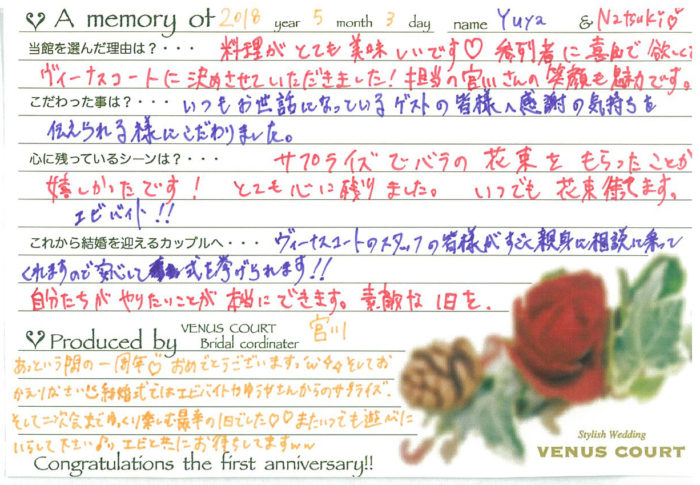 ♡ A memory of 2018 year 5 month 3 day name Yuya & Natsuki♡
当館を選んだ理由は？・・・ 料理がとても美味しいです♡ 参列者に喜んで欲しくて
ヴィーナスコートに決めさせていただきました！担当の宮川さんの笑顔も魅力です。
こだわった事は？・・・ いつもお世話になっているゲストの皆様へ感謝の気持ちを
伝えられる様にこだわりました。
心に残っているシーンは？・・・ サプライズでバラの花束をもらったことが
嬉しかったです！ とても心に残りました。 いつでも花束待てます。
エビバイト!!
これから結婚を迎えるカップルへ・・・ ヴィーナスコートのスタッフの皆様がすごく親身に相談に乗って
くれますので安心して式を挙げられます!!
自分たちがやりたいことが本当にできます。素敵な1日を。
♡ Produced by VENUS COURT Bridal cordinater 宮川
あっという間の一周年♡ おめでとうございます。 そしてお
かえりなさい 結婚式ではエビバイトやゆうやさんからのサプライズ、
そして二次会までゆっくり楽しむ最幸の1日でした♡♡またいつでも遊びに
いらして下さい♪ エビと共にお待ちしてますww
Congratulations the first anniversary!!
Stylish Wedding
VENUS COURT